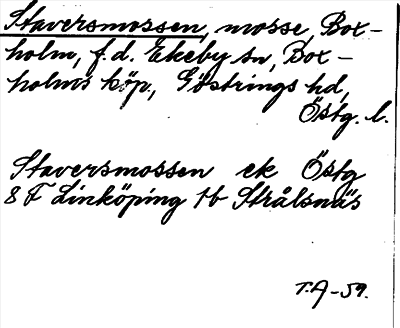 Staversmossen, mosse, Box-
holm, f.d. Ekeby sn, Box-
holms köp., Göstrings hd,
Östg. l.
Staversmossen ek Östg
8 F Linköping 1b Strålsnäs
T.A-59.